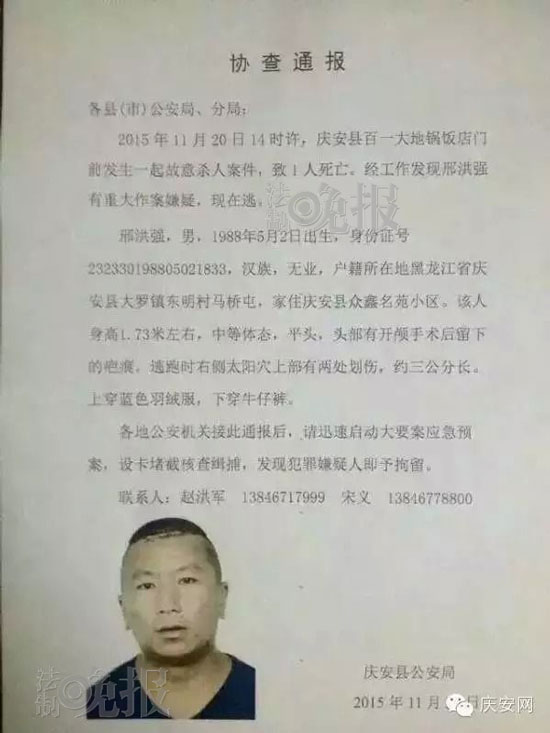 协查通报
各县(市)公安局、分局:
2015年11月20日14时许，庆安县百一大地锅饭店门
前发生一起故意杀人案件，致1人死亡。经工作发现邢洪强
有重大作案嫌疑，现在逃。
法制晚报
邢洪强，男，1988年5月2日出生，身份证号
232330198805021833，汉族，无业，户籍所在地黑龙江省庆
安县大罗镇东明村马桥屯，家住庆安县众鑫名苑小区。该人
身高1.73米左右，中等体态，平头，头部有开颅手术后留下
的疤痕，逃跑时右侧太阳穴上部有两处划伤，约三公分长。
上穿蓝色羽绒服，下穿牛仔裤。
各地公安机关接此通报后，请迅速启动大要案应急预
案，设卡堵截核查缉捕，发现犯罪嫌疑人即予拘留。
联系人：赵洪军 13846717999 宋义 13846778800
法制晚报
庆安县公安局
2015年11月 日
庆安网